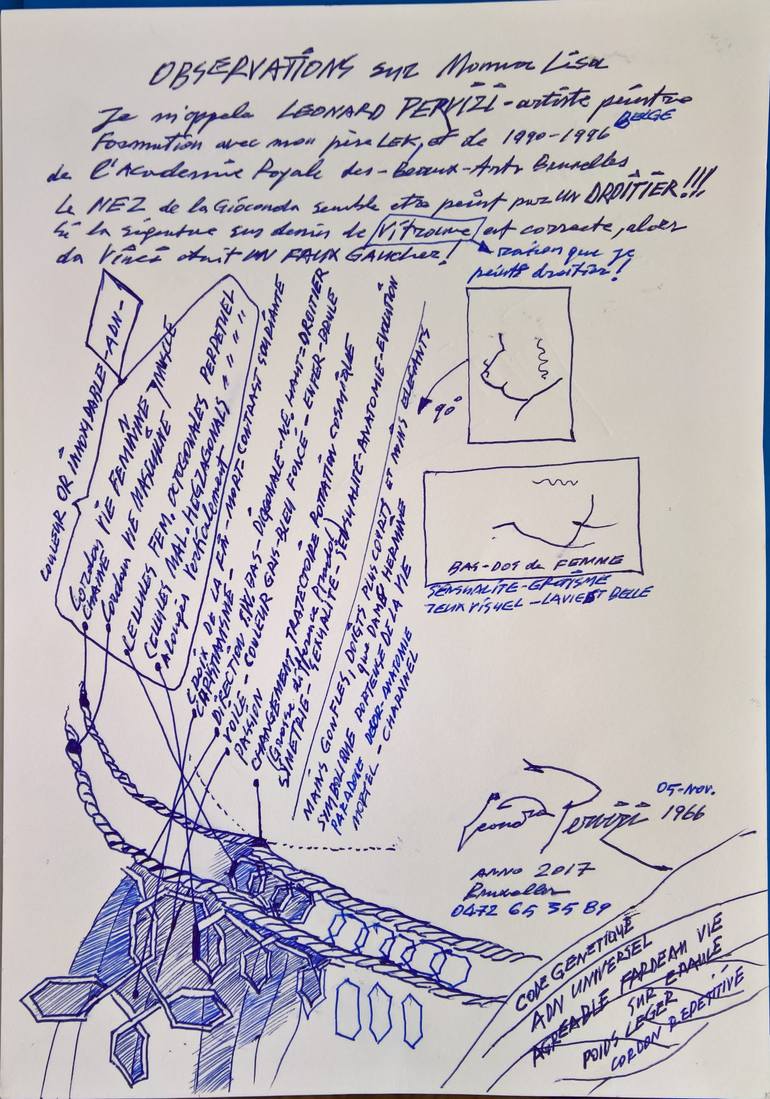 OBSERVATIONS sur Monna Lisa
Je m'appele LEONARD PERVIZI - artiste peintre
BELGE
Formation avec mon père LEK, et de 1990-1996
de l'Academie Royale des-Beaux-Arts Bruxelles
Le NEZ de la Gioconda semble etre peint par UN DROITIER!!!
Si la signature sur dessin de Vitrouve est correcte, alors
da Vinci etait UN FAUX GAUCHER!
raison que je
peints droitier!
COULEUR OR INOXIDABLE - ADN -
Cordon VIE FEMININE
CHAINE
Cordon VIE MASCULINE
CELLULES FEM. OCTOGONALES PERPETUEL
CELLULES MAL. HEGZAGONALS " " " "
Alongés Verticalement
CROIX DE LA
CHRISTIANISME - MORT CONTRAST SOURIANTE
DIRECTION BAS-DIAGONALE-NÉ HAUT=DROITIER
VOILE - COULEUR GRIS-BLEU FONCÉ - ENFER-BRULE
PASSION
CHANGEMENT TRAJECTOIRE ROTATION COSMIQUE
(Grosse difference Prado!)
SYMETRIE - SEXUALITE - SENSUALITE - ANATOMIE - EVOLUTION
MAINS GONFLES, DOIGTS PLUS COURTS ET MOINS ELEGANTS
que DAME HERMINNE
SYMBOLIQUE PORTEUSE DE LA VIE
PARADOXE ANATOMIE
MORTEL - CHARNNEL
90°
BAS-DOS de FEMME
SENSUALITE-EROTISME
JEUX VISUEL - LA VIE EST BELLE
Leonard Pervizi
05-Nov.
1966
ANNO 2017
Bruxelles
0472 65 35 89
CODE GENETIQUE
ADN UNIVERSEL
AGREABLE FARDEAU VIE
SUR EPAULE
POIDS LEGER
CORDON REPETITIVE